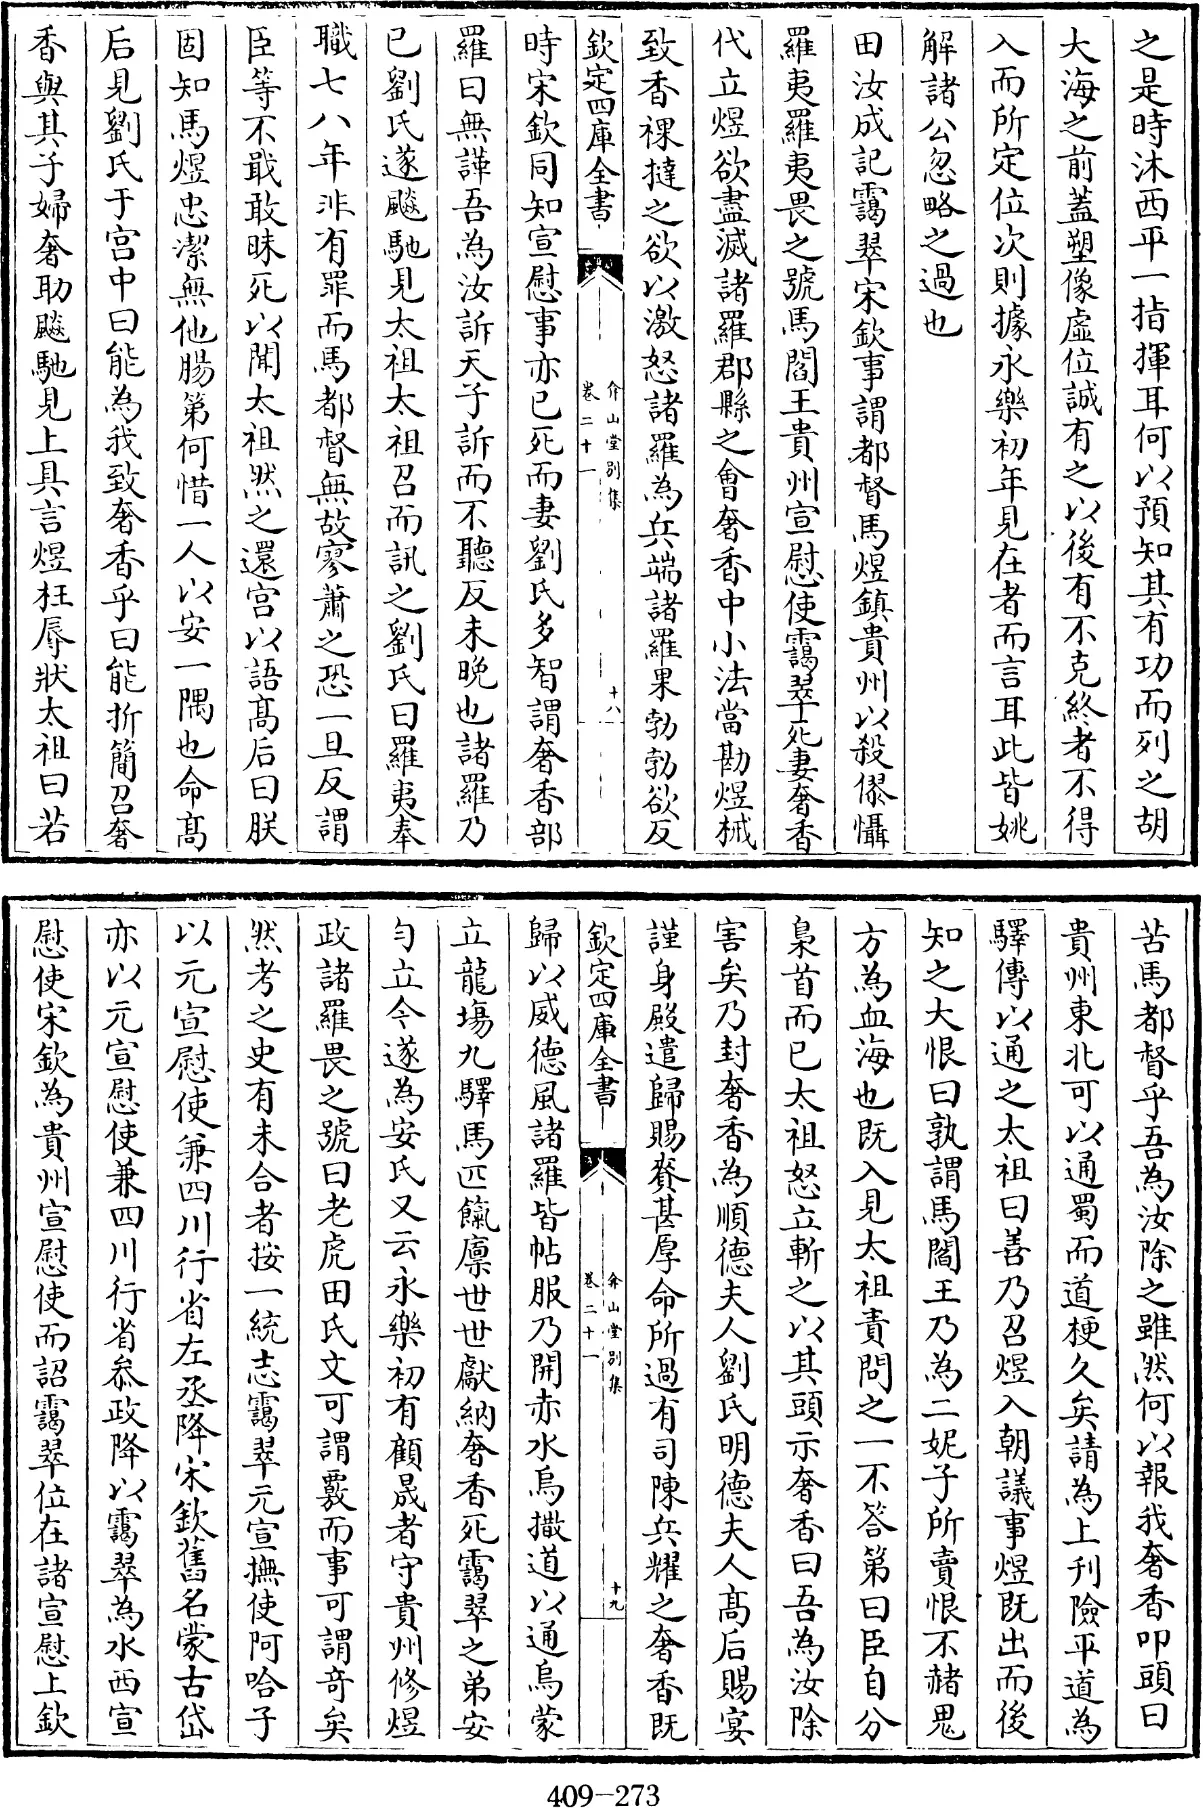 之是時沐西平一指揮耳何以預知其有功而列之胡
大海之前蓋塑像虛位誠有之以後有不克終者不得
入而所定位次則據永樂初年見在者而言耳此皆姚
解諸公忽略之過也
田汝成記靄翠宋欽事謂都督馬煜鎮貴州以殺僇懾
羅夷羅夷畏之號馬閻王貴州宣慰使靄翠死妻奢香
代立煜欲盡滅諸羅郡縣之會奢香中小法當勘煜械
致香裸撻之欲以激怒諸羅為兵端諸羅果勃勃欲反
欽定四庫全書
弇山堂別集
卷二十一
十八
時宋欽同知宣慰事亦已死而妻劉氏多智謂奢香部
羅曰無譁吾為汝訴天子訴而不聽反未晚也諸羅乃
已劉氏遂飈馳見太祖太祖召而訊之劉氏曰羅夷奉
職七八年非有罪而馬都督無故寥蕭之恐一旦反謂
臣等不戢敢昧死以聞太祖然之還宮以語髙后曰朕
固知馬煜忠潔無他腸第何惜一人以安一隅也命髙
后見劉氏于宮中曰能為我致奢香乎曰能折簡召奢
香與其子婦奢助飈馳見上具言煜枉辱狀太祖曰若
苦馬都督乎吾為汝除之雖然何以報我奢香叩頭曰
貴州東北可以通蜀而道梗久矣請為上刊險平道為
驛傳以通之太祖曰善乃召煜入朝議事煜既出而後
知之大恨曰孰謂馬閻王乃為二妮子所賣恨不赭鬼
方為血海也既入見太祖責問之一不答第曰臣自分
梟首而已太祖怒立斬之以其頭示奢香曰吾為汝除
害矣乃封奢香為順德夫人劉氏明德夫人髙后賜宴
謹身殿遣歸賜賚甚厚命所過有司陳兵耀之奢香既
欽定四庫全書
弇山堂別集
卷二十一
十九
歸以威德風諸羅皆帖服乃開赤水烏撒道以通烏蒙
立龍場九驛馬匹餼廪世世獻納奢香死靄翠之弟安
勻立今遂為安氏又云永樂初有顧晟者守貴州修煜
政諸羅畏之號曰老虎田氏文可謂覈而事可謂奇矣
然考之史有未合者按一統志靄翠元宣撫使阿哈子
以元宣慰使兼四川行省左丞降宋欽舊名蒙古岱
亦以元宣慰使兼四川行省參政降以靄翠為水西宣
慰使宋欽為貴州宣慰使而詔靄翠位在諸宣慰上欽
409-273